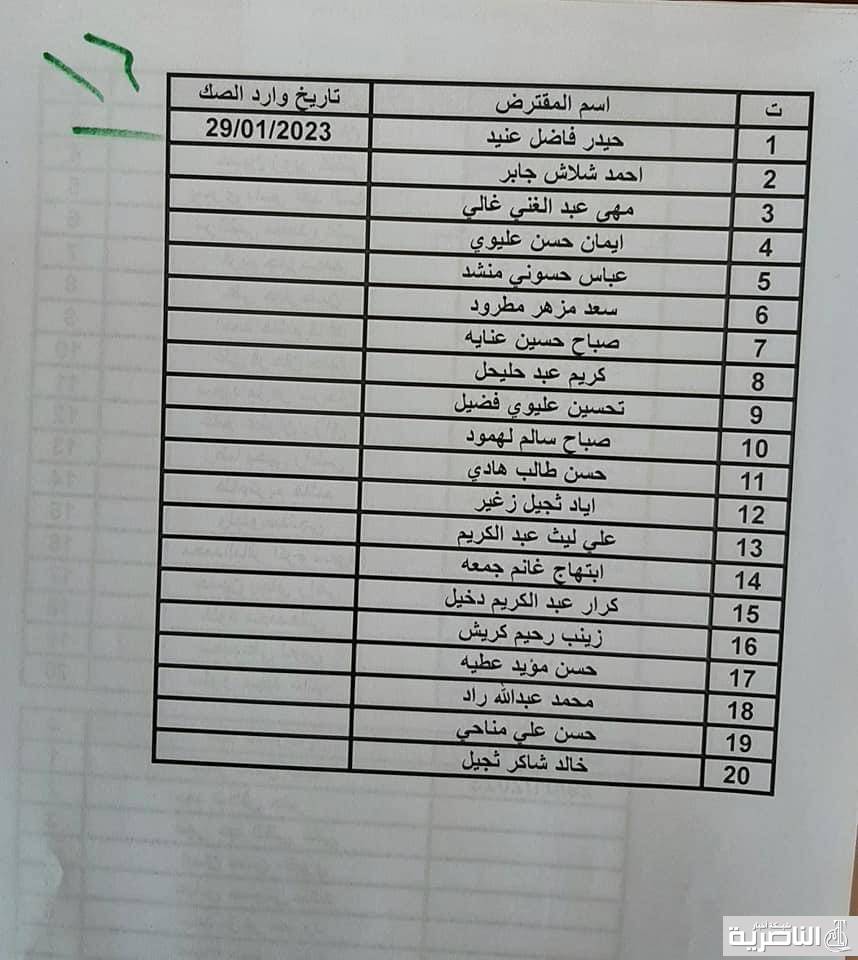 ١٦
ت اسم المقترض تاريخ وارد الصك
1 حيدر فاضل عنيد 29/01/2023
2 احمد شلاش جابر
3 مهى عبد الغني غالي
4 ايمان حسن عليوي
5 عباس حسوني منشد
6 سعد مزهر مطرود
7 صباح حسين عنايه
8 كريم عبد حليحل
9 تحسين عليوي فضيل
10 صباح سالم لهمود
11 حسن طالب هادي
12 اياد ثجيل زغير
13 علي ليث عبد الكريم
14 ابتهاج غانم جمعه
15 كرار عبد الكريم دخيل
16 زينب رحيم كريش
17 حسن مؤيد عطيه
18 محمد عبدالله راد
19 حسن علي مناحي
20 خالد شاكر ثجيل
شبكة اخبار
الناصرية